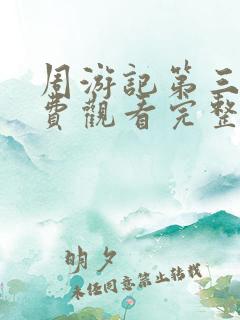 周游記第三
費觀看完整
明夕
未经同意禁止转载